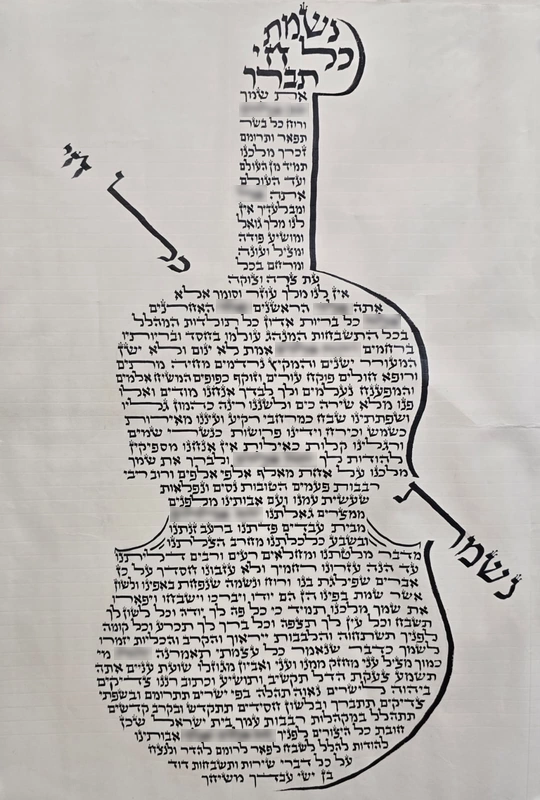 נשמת
כל חי
תברך
את שמך
ורוח כל בשר
תפאר ותרומם
זכרך מלכנו
תמיד מן העולם
ועד העולם
אתה
ומבלעדיך אין
לנו מלך גואל
ומושיע פודה
ומציל ועונה
ומרחם בכל
עת צרה וצוקה
אין לנו מלך עוזר וסומך אלא
אתה הראשנים האחרנים
כל בריות אדון כל תולדות המהלל
בכל התשבחות המנהג עולמו בחסד ובריותיו
ברחמים אמת לא ינום ולא ישן
המעורר ישנים והמקיץ נרדמים מחיה מתים
ורופא חולים פוקח עורים וזוקף כפופים המשיח אלמים
והמפענח נעלמים ולך לבדך אנחנו מודים ואלו
פנו מלא שירה כים ולשננו רנה כהמון גליו
ושפתתינו שבח כמרחבי רקיע ועיננו מאירות
כשמש וכירח וידינו פרושות כנשרי שמים
ורגלינו קלות כאילות אין אנחנו מספיקין
להודות לך ולברך את שמך
מלכנו על אחת מאלף אלפי אלפים ורוב רבי
רבבות פעמים הטובות נסים ונפלאות
שעשית עמנו ועם אבותינו מלפנים
ממצרים גאלתנו
מבית עבדים פדתנו ברעב זנתנו
ובשבע כלכלתנו מחרב הצלתנו
מדבר מלטתנו ומחלאים רעים ורבים דליתנו
עד הנה עזרונו רחמיך ולא עזבונו חסדיך על כן
אברים שפילגת בנו ורוח ונשמה שנפחת באפינו ולשון
אשר שמת בפינו הן הם יודו ויברכו וישבחו ויפארו
את שמך מלכנו תמיד כי כל פה לך יודה וכל לשון לך
תשבח וכל עין לך תצפה וכל ברך לך תכרע וכל קומה
לפניך תשתחוה והלבבות ייראוך והקרב והכליות יזמרו
לשמך כדבר שנאמר כל עצמתי תאמרנה מי
כמוך מציל עני מחזק ממנו ועני ואביון מגוזלו שועת עניים אתה
תשמע צעקת הדל תקשיב ותושיע וכתוב רננו צדיקים
ביהוה לישרים נאוה תהלה בפי ישרים תתרומם ובשפתי
צדיקים תתברך ובלשון חסידים תתקדש ובקרב קדשים
תתהלל במקהלות רבבות עמך בית ישראל שכן
חובת כל היצורים לפניך אבותינו
להודות להלל לשבח לפאר לרומם להדר ולנצח
על כל דברי שירות ותשבחות דוד
בן ישי עבדך משיחך
נשמת
כל
חי